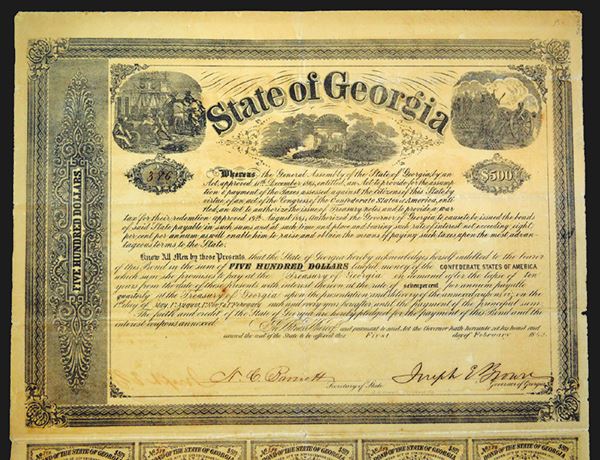 State of Georgia
386
$500
FIVE HUNDRED DOLLARS.
Whereas the General Assembly of the State of Georgia, by an
Act, approved 11th December 1861, entitled, an Act to provide for the assump
tion & payment of the Taxes assessed against the Citizens of this State by
virtue of an act of the Congress of the Confederate States of America, entit
led, an act to authorize the issue of Treasury notes and to provide a war
tax for their redemption approved 19th August 1861, authorized the Governor of Georgia to cause to be issued the bonds
of said State payable in such sums and at such time and place and bearing such rate of interest not exceeding eight
per cent per annum as will enable him to raise and obtain the means of paying such taxes upon the most advan
tageous terms to the State:
Know All Men by these Presents, that the State of Georgia hereby acknowledges herself indebted to the bearer
of this Bond in the sum of FIVE HUNDRED DOLLARS lawful money of the CONFEDERATE STATES OF AMERICA
which sum she promises to pay at the Treasury of Georgia on demand after the lapse of ten
years from the date of these presents with interest thereon at the rate of seven per cent per annum payable
quarterly at the Treasury of Georgia upon the presentation and delivery of the annexed coupons
1st day of May, 1st August, 1st Nov. & 1st February each and every year hereafter until the payment of the principal sum
The faith and credit of the State of Georgia are hereby pledged for the payment of this Bond and the
interest coupons annexed.
In Witness whereof and pursuant to said Act the Governor hath hereunto set his hand and
caused the seal of the State to be affixed this First day of February 186
N. C. Barnett
Secretary of State
Joseph E Brown
Governor of Georgia
OF THE STATE OF GEORGIA
BOND OF THE STATE OF GEORGIA
BOND OF THE STATE OF GEORGIA
BOND OF THE STATE OF GEORGIA
BOND OF THE STATE OF GEORGIA